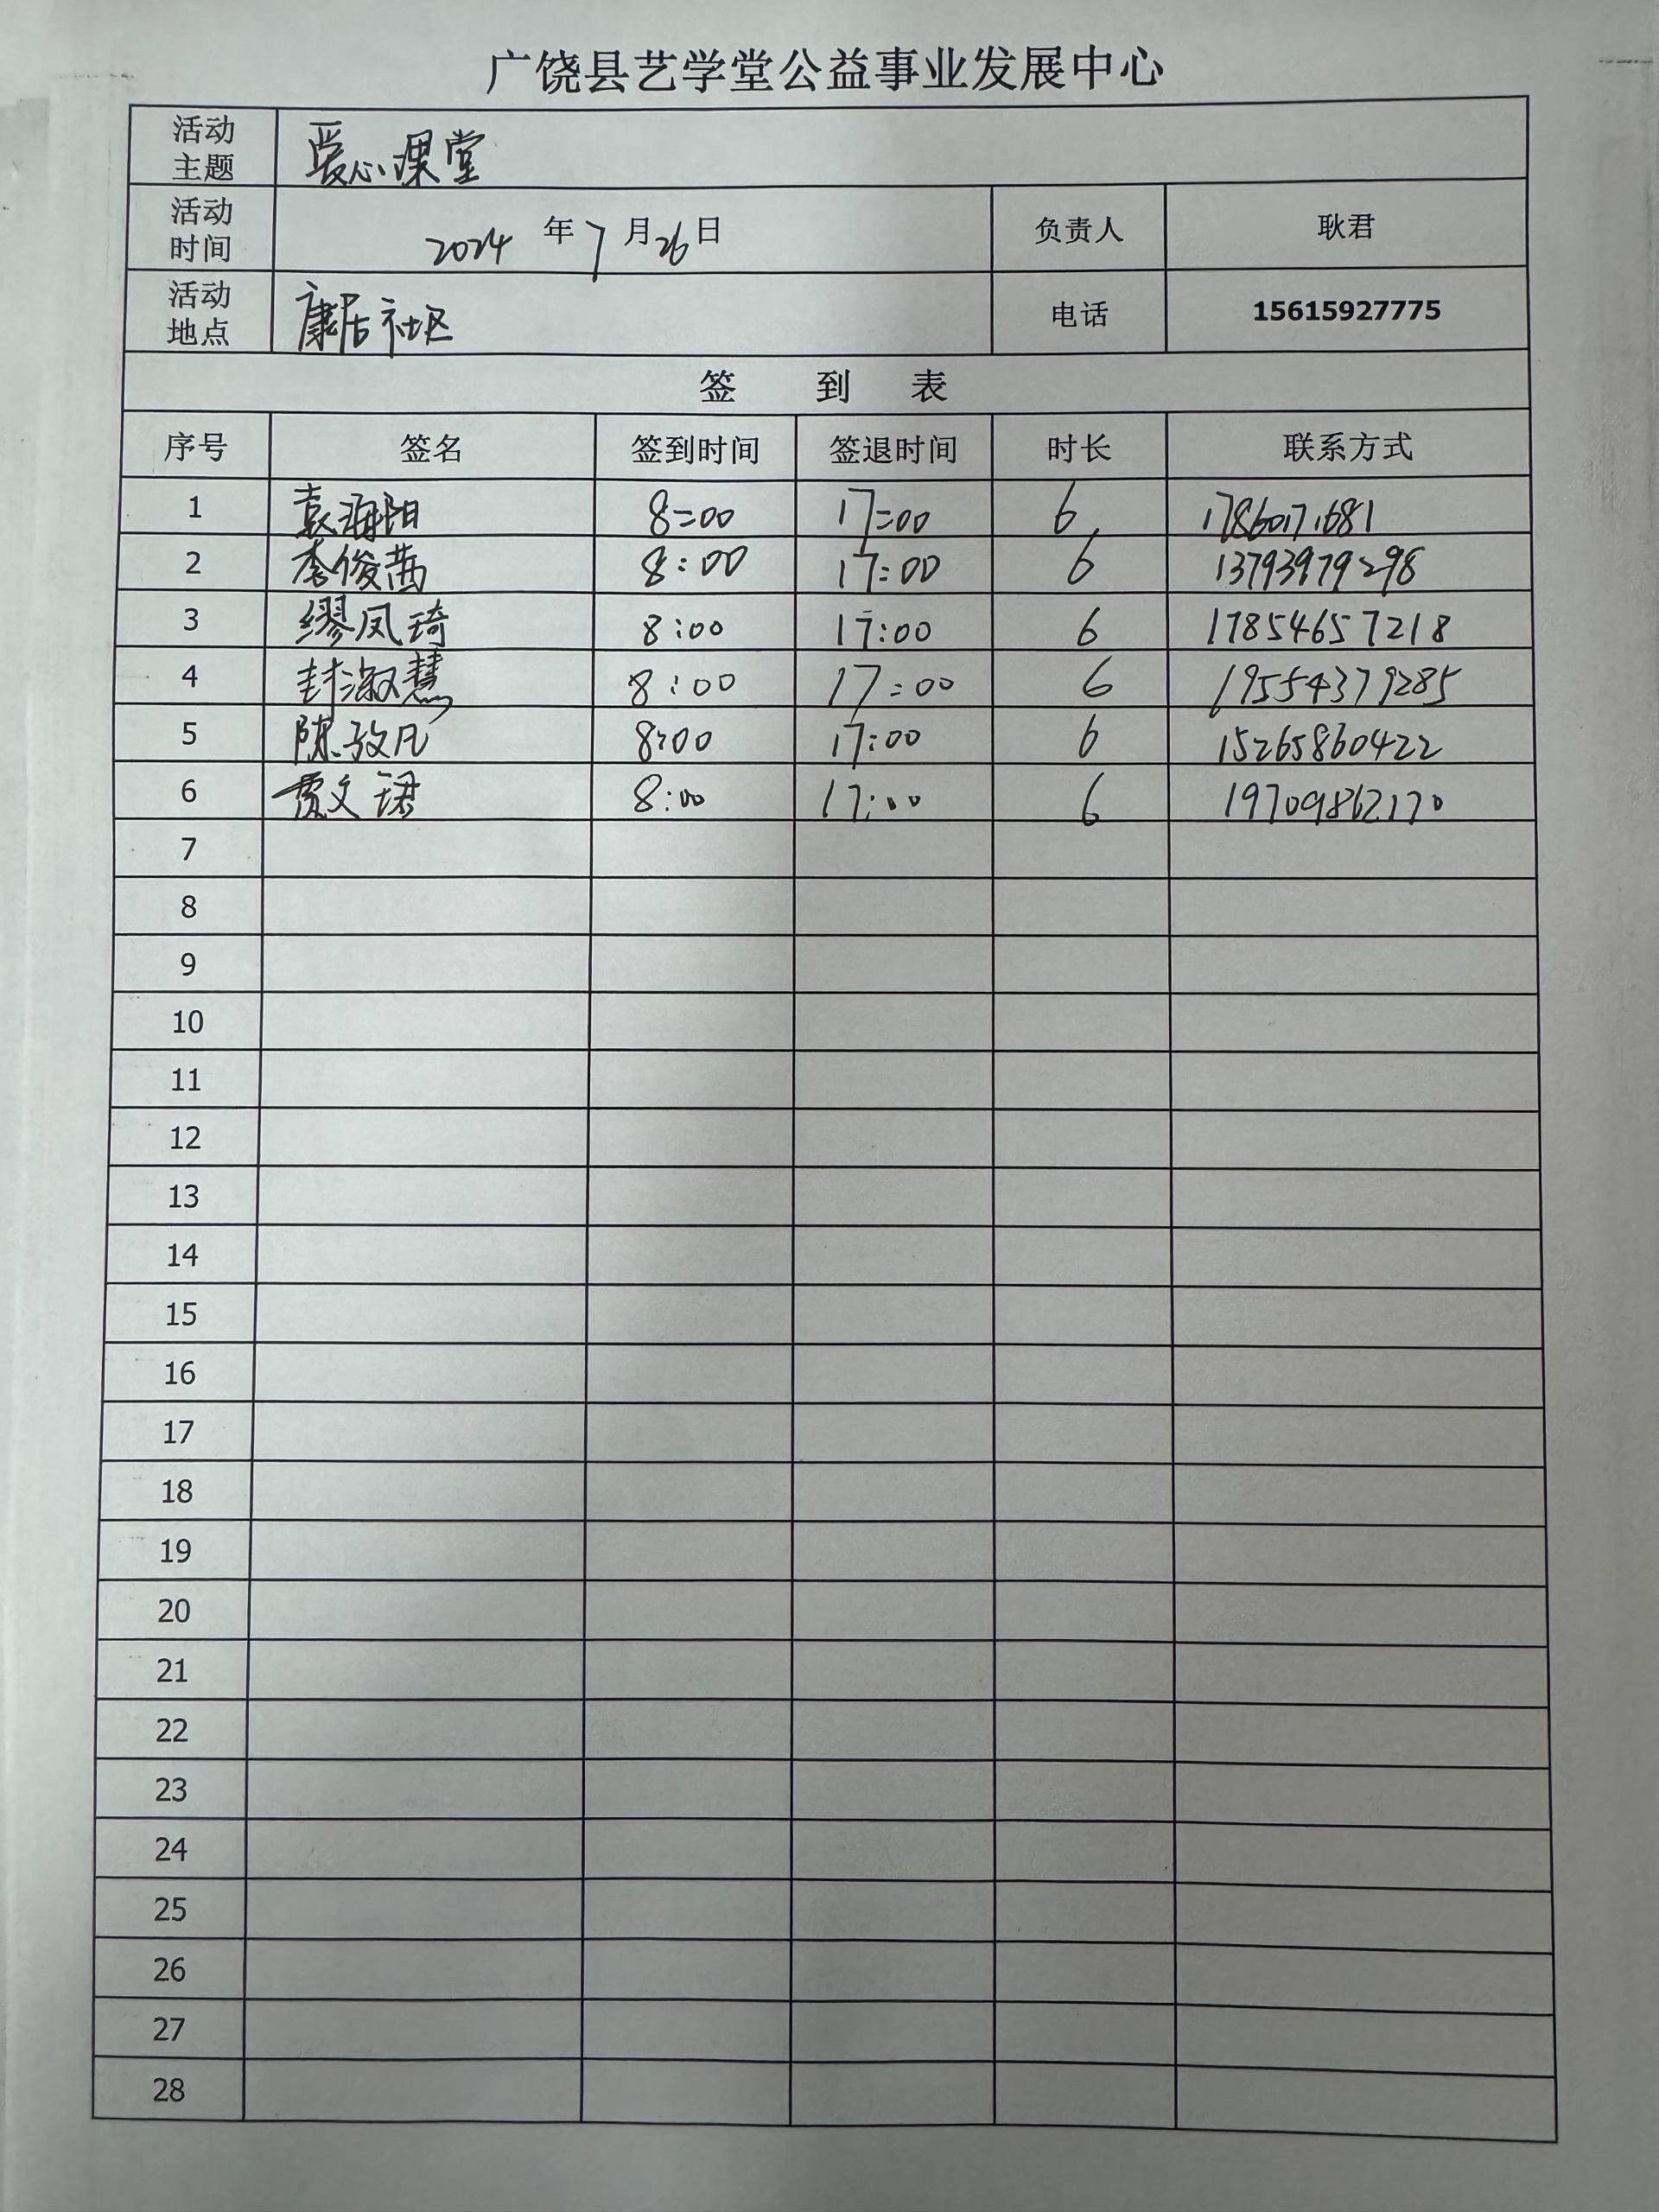 广饶县艺学堂公益事业发展中心
活动主题 爱心课堂
活动时间 2024 年 7 月 26 日 负责人 耿君
活动地点 康居社区 电话 15615927775
签 到 表
序号 签名 签到时间 签退时间 时长 联系方式
1 袁海阳 8:00 17:00 6 17860171681
2 李俊茜 8:00 17:00 6 13793979298
3 缪凤琦 8:00 17:00 6 17854657218
4 封淑慧 8:00 17:00 6 19554379285
5 陈孜凡 8:00 17:00 6 15265860422
6 贾文珺 8:00 17:00 6 19709862170
7
8
9
10
11
12
13
14
15
16
17
18
19
20
21
22
23
24
25
26
27
28